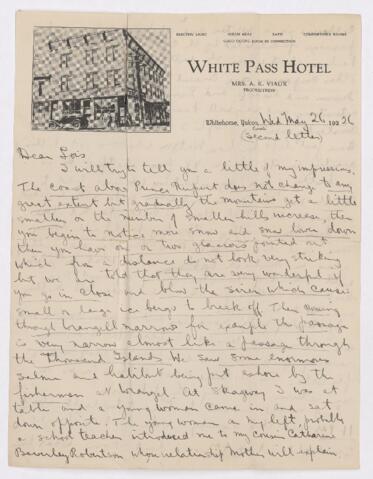 ELECTRIC LIGHT STEAM HEAT BATH COMFORTABLE ROOMS
GOOD DINING ROOM IN CONNECTION
WHITE PASS HOTEL
MRS. A. E. VIAUX
PROPRIETRESS
Whitehorse, Yukon, Wed May 26 1926
(second letter)
Dear Lois
I will try to tell you a little of my impressions.
The coast above Prince Rupert does not change to any
great extent but gradually the mountains get a little
smaller or the number of smaller hills increase, then
you begin to notice more snow and snow lower down
then you have one or two glaciers pointed out
which from a distance do not look very striking
but we are told that they are very wonderful if
you go in close and blow the siren which causes
small or large ice bergs to break off. Then
through Wrangell narrows for example the passage
is very narrow almost like a passage through
the Thousand Islands. We saw some enormous
salmon and halibut being put ashore by the
fishermen at Wrangel. At Skagway I was at
table and a young woman came in and sat
down opposite. The young woman on my left probably
a school teacher introduced me to my cousin Catharine
Beverley Robertson whose relationship Mother will explain